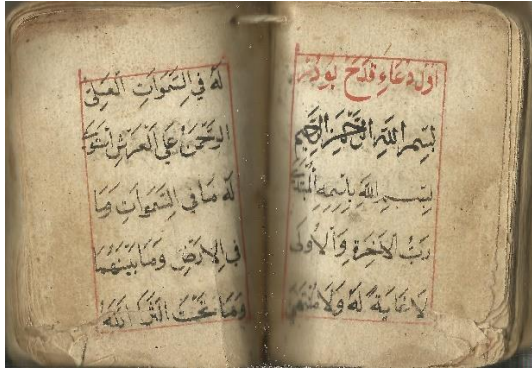 اول دعاء قدح بودر
بسم الله الرحمن الرحيم
بسم الله باسمه المبتدئ
رب الآخرة والأولى
لا غاية له ولا منتهى
له في السموات العلى
الرحمن على العرش استوى
له ما في السموات وما
في الارض وما بينهما
وما تحت الثرا الله